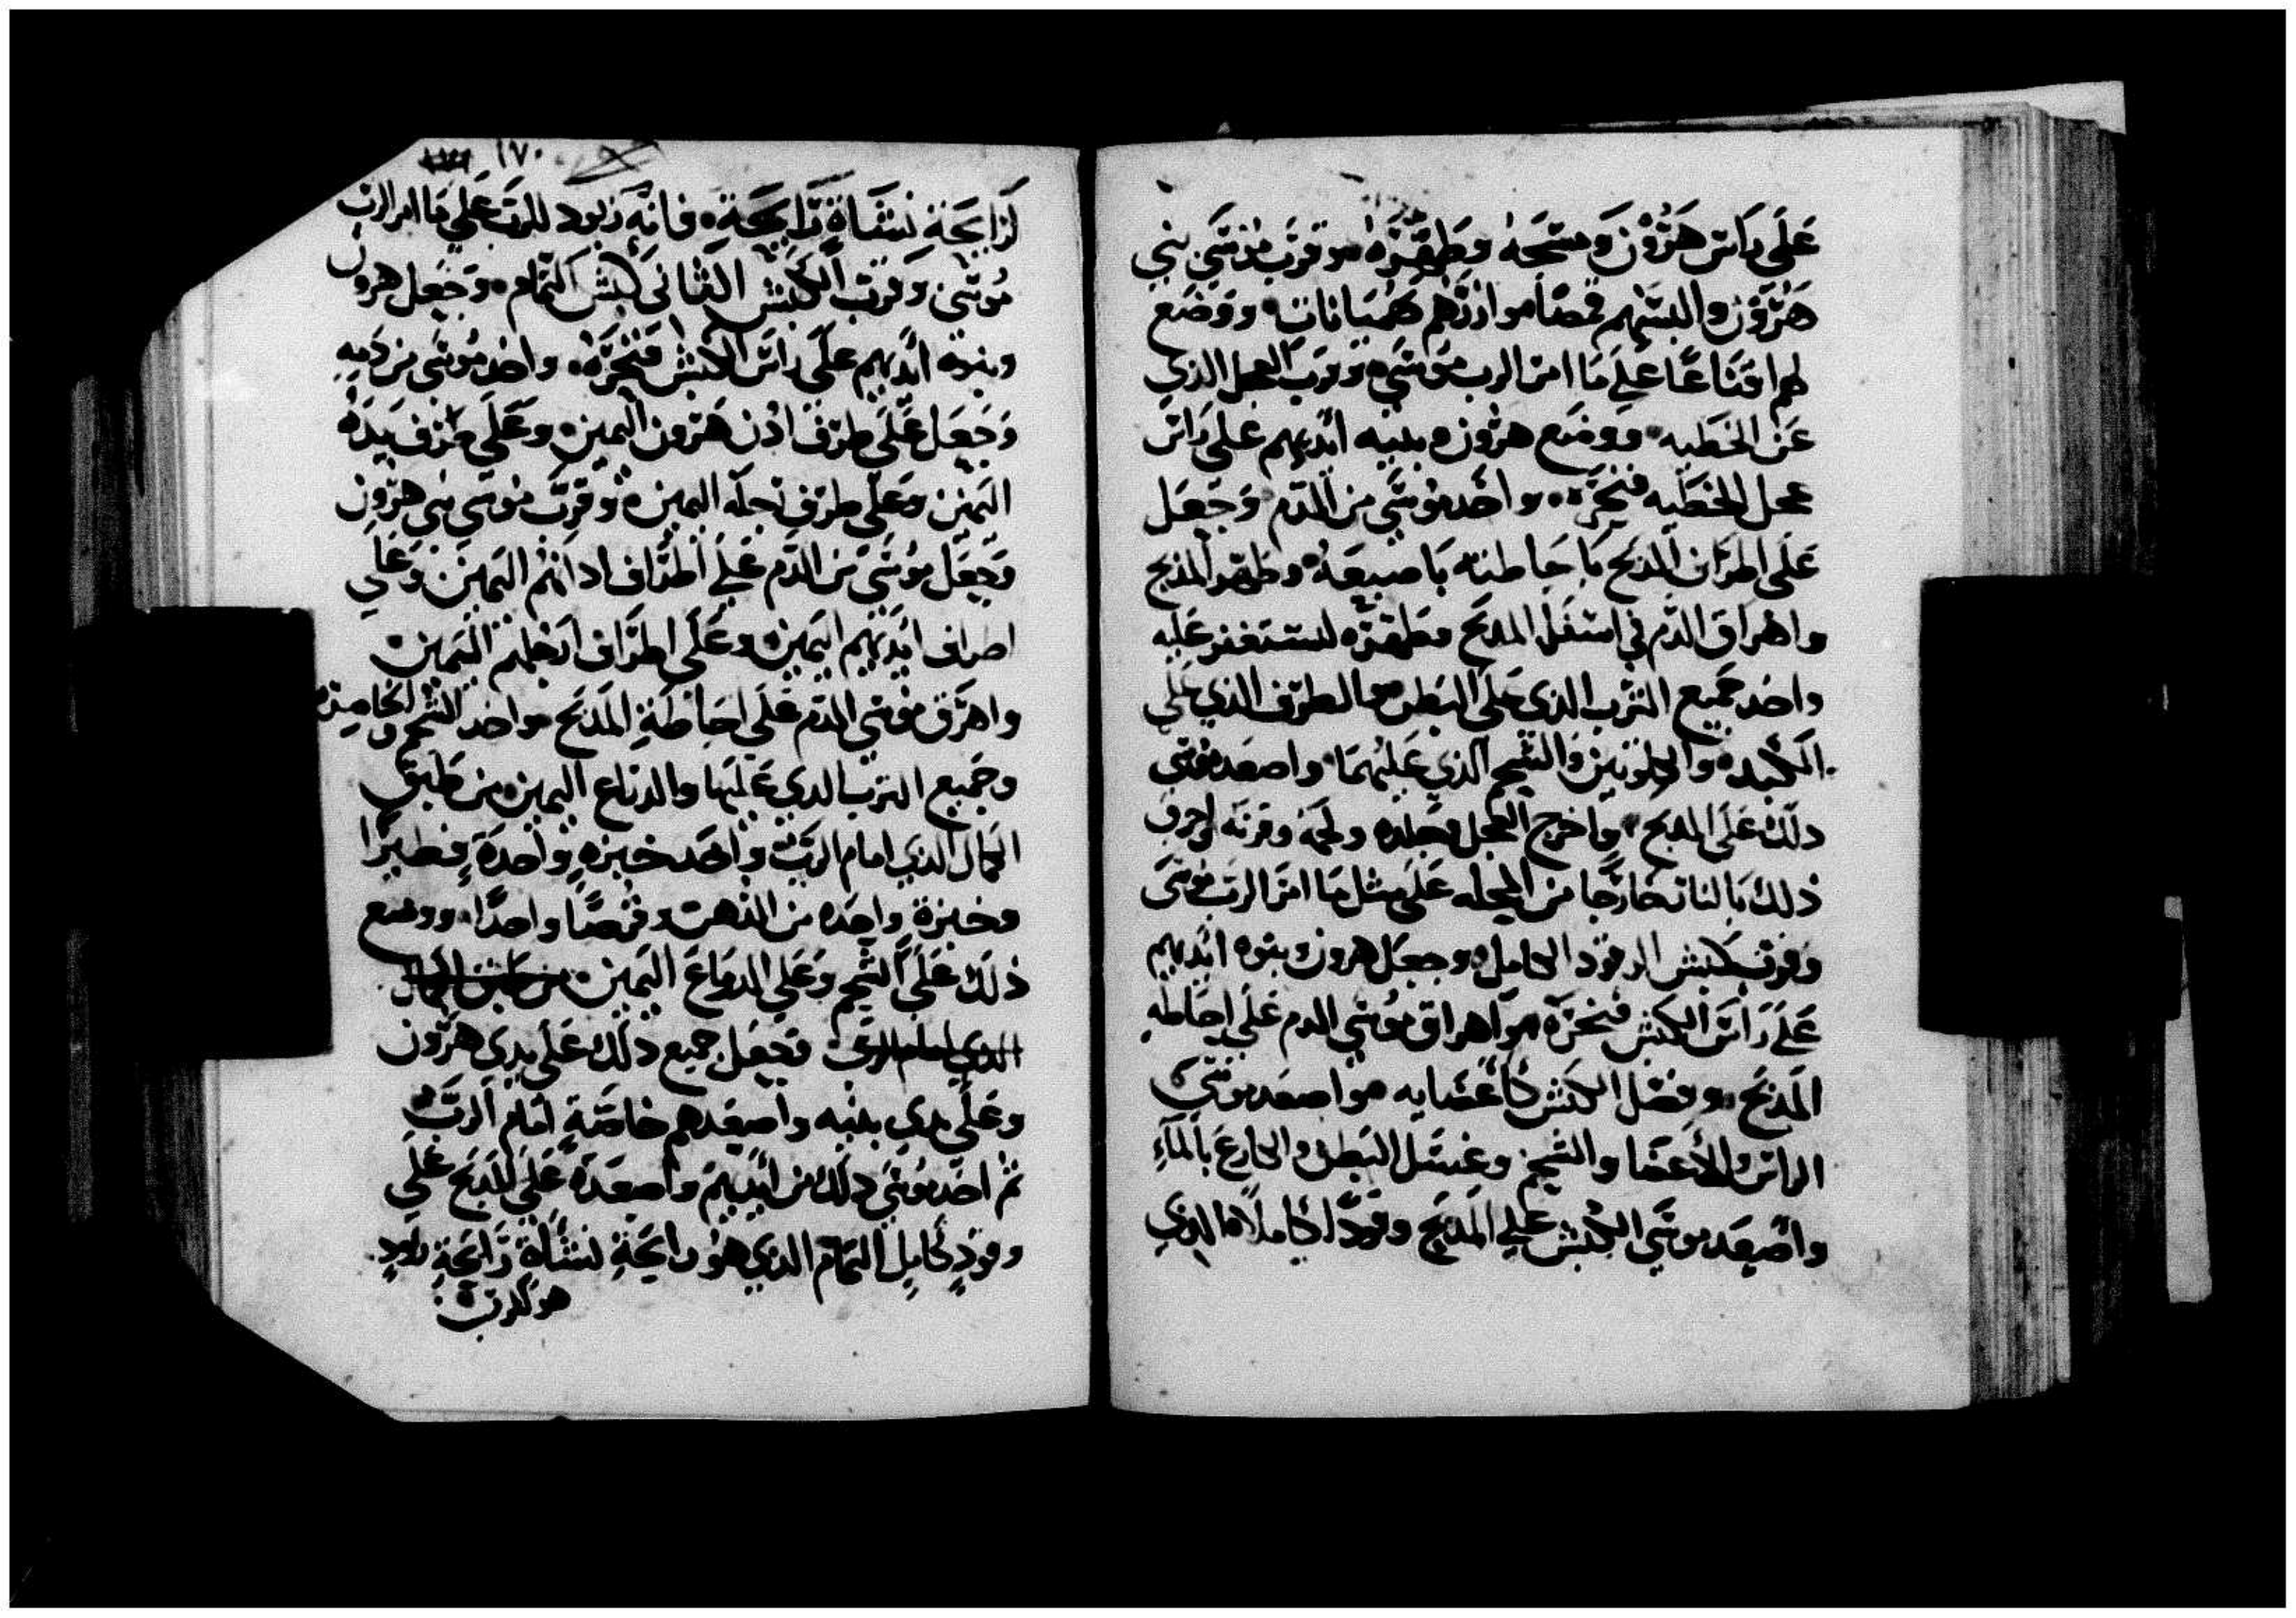 على راس هرون ومسحه وطهره وقرب موسى بني
هرون والبسهم قمصا وازرهم هميانات ووضع
لهم اقناعا على ما امر الرب موسى وقرب العجل الذي
عن الخطيه ووضع هرون وبنيه ايديهم على راس
عجل الخطيه فنحره واخد موسى من الدم وجعل
على اطراف المدبح باحاطته باصبعه وطهر المدبح
واهراق الدم في اسفل المدبح وطهره ليستغفر عليه
واخد جميع الثرب الذي على البطن والطرف الذي على
الكبد والكلوتين والشحم الذي عليهما واصعد موسى
دلك على المدبح واخرج العجل وجلده ولحمه وفرثه واحرق
ذلك بالنار خارجا من المحله على مثل ما امر الرب موسى
وقرب كبش الوقود الكامل وجعل هرون وبنوه ايديهم
على راس الكبش فنحره واهراق موسى الدم على احاطه
المدبح وفصل الكبش كاعضايه واصعد موسى
الراس والاعضا والشحم وغسل البطن والكارع بالماء
واصعد موسى الكبش على المدبح وقودا كاملا الذي
١٧٠
لرايحة نشاة رايحة فانه وقود للرب على ما امر الرب
موسى وقرب الكبش الثاني كبش التمام وجعل هرون
وبنوه ايديهم على راس الكبش فنحره واخد موسى من دمه
وجعل على طرف ادن هرون اليمين وعلى طرف يده
اليمين وعلى طرف رجله اليمين وقرب موسى بني هرون
وجعل موسى من الدم على اطراف ادانهم اليمين وعلى
اطراف ايديهم اليمين وعلى اطراف ارجلهم اليمين
واهرق موسى الدم على احاطة المدبح واخد الشحم و
وجميع الثرب الدي عليها والدراع اليمين من طبق
الكمال الذي امام الرب واخد خبزه واحدة فطيرا
وخبزة واحده من الدهن وقرصا واحدا ووضع
ذلك على الشحم وعلى الدراع اليمين من طبق الكمال
الذي امام الرب وجعل جميع دلك على يدي هرون
وعلى يدي بنيه واصعدهم خاصة امام الرب
ثم اخد موسى دلك من ايديهم واصعده على المدبح على
وقود كامل التمام الذي هو رايحة نشاة رايحة وقود
هو للرب